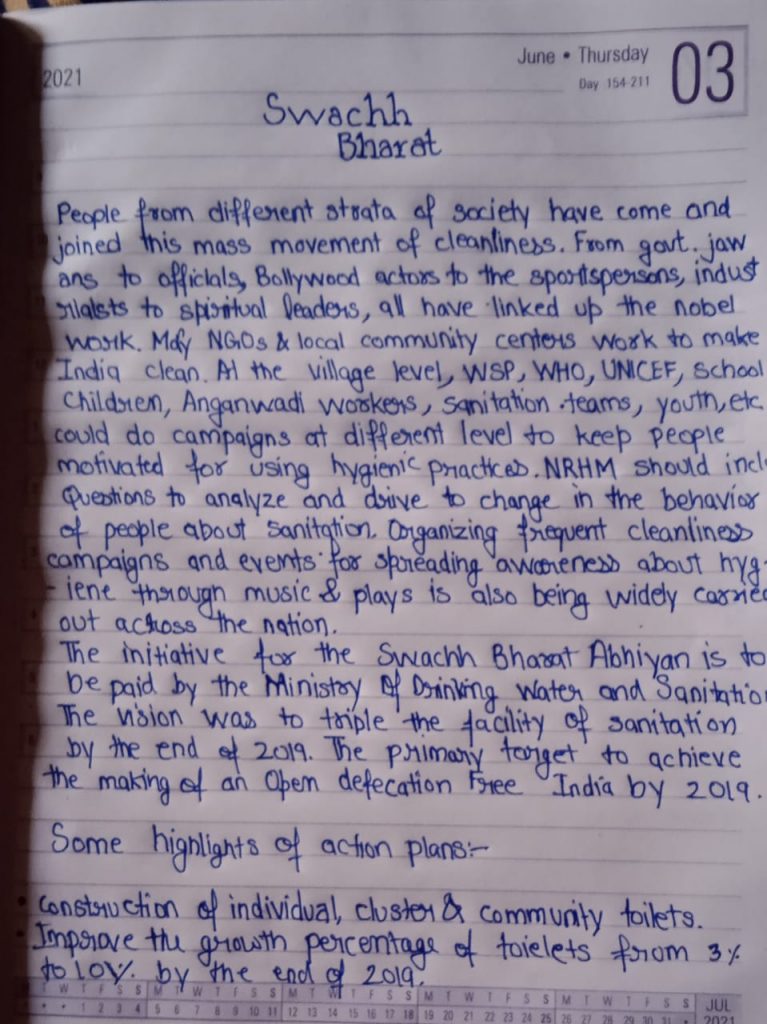 2021
June • Thursday
Day 154-211
03
Swachh
Bharat
People from different strata of society have come and
joined this mass movement of cleanliness. From govt. jaw
ans to officials, Bollywood actors to the sportspersons, indust
rialists to spiritual leaders, all have linked up the nobel
work. NGOs & local community centers work to make
India clean. At the village level, WSP, WHO, UNICEF, School
Children, Anganwadi workers, sanitation teams, youth, etc.
could do campaigns at different level to keep people
motivated for using hygienic practices. NRHM should incl
Questions to analyze and drive to change in the behavior
of people about sanitation. Organizing frequent cleanliness
campaigns and events for spreading awareness about hyg-
-iene through music & plays is also being widely carried
out across the nation.
The initiative for the Swachh Bharat Abhiyan is to
be paid by the Ministry Of Drinking Water and Sanitatio
The vision was to triple the facility of sanitation
by the end of 2019. The primary target to achieve
the making of an Open defecation Free India by 2019.
Some highlights of action plans:-
• construction of individual, cluster & community toilets.
• Improve the growth percentage of toielets from 3%
to 10% by the end of 2019.
T W T F S S M T W T F S S M T W T F S S M T W T F S S M T W T F S S JUL
• • 1 2 3 4 5 6 7 8 9 10 11 12 13 14 15 16 17 18 19 20 21 22 23 24 25 26 27 28 29 30 31 • 2021